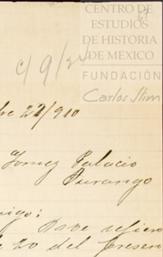 CENTRO DE
ESTUDIOS
DE HISTORIA
DE MÉXICO
FUNDACIÓN
Carlos Slim
re 22/910
Gomez Palacio
Durango
igo:
20 del presen